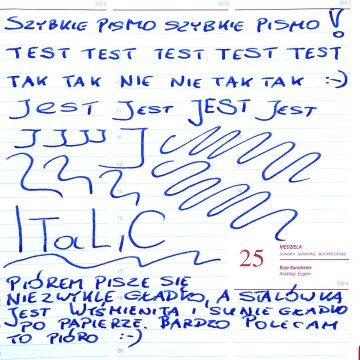 SZYBKIE PISMO SZYBKIE PISMO !
TEST TEST TEST TEST TEST
TAK TAK NIE NIE TAK TAK :-)
JEST JEST JEST JEST
JJJJJ J
ITALIC
25
NIEDZIELA
SUNDAY SONNTAG
Boże Narodzenie
Anastazji, Eugenii
PIÓREM PISZE SIĘ
NIEZWYKLE GŁADKO, A STALÓWKA
JEST WYŚMIENITA I SUNIE GŁADKO
PO PAPIERZE. BARDZO POLECAM
TO PIÓRO :-)